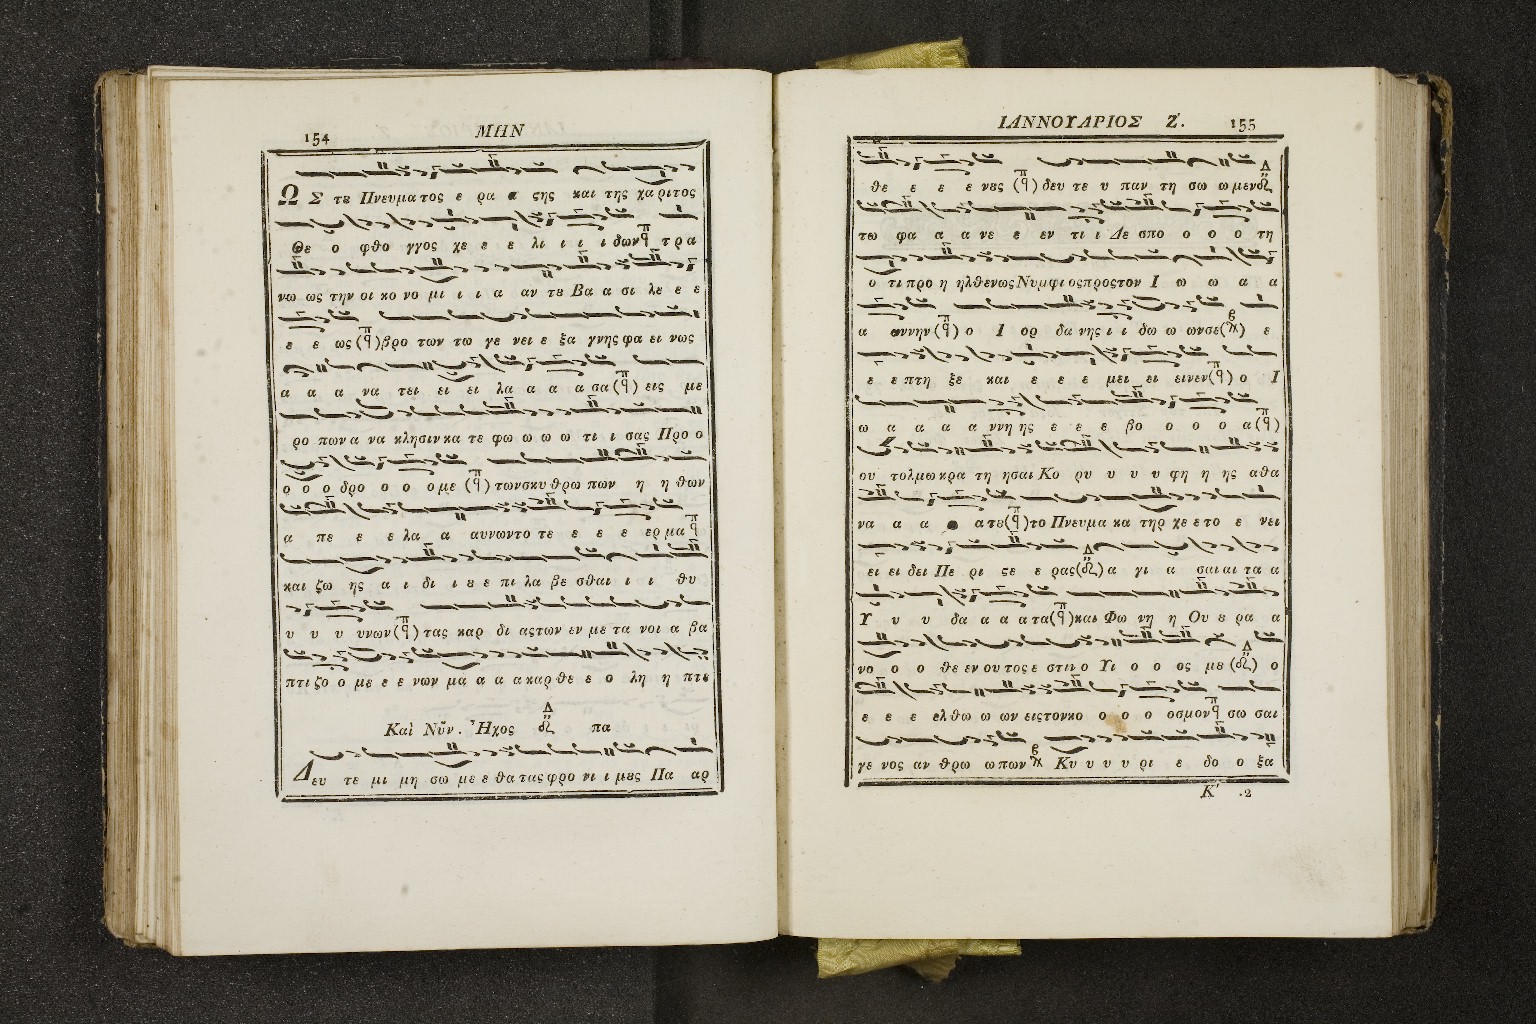 154 ΜΗΝ
Ω Σ τȣ Πνευματος ε ρα α ςης και της χαριτος
Θε ο φθο γγος χε ε ε λι ι ι ι δων τρα
νω ως την οι κο νο μι ι ι α αν τȣ Βα α σι λε ε ε
ε ε ως (π) βρο των τω γε νει ε ξα γνης φα ει νως
α α α να τει ει ει λα α α α σα (π) εις με
ρο πων α να κλησιν κα τε φω ω ω ω τι ι σας Προ ο
ο ο ο δρο ο ο ο με (π) των σκυ θρω πων η η θων
α πε ε ε λα α αυνων το τε ε ε ε ερ μα
και ζω ης α ι δι ι ȣ ε πι λα βε σθαι ι ι θυ
υ υ υ υνων (π) τας καρ δι ας των εν με τα νοι α βα
πτι ζο ο με ε ε νων μα α α α καρ θε ε ο λη η πτε
Και Νῦν. Ἦχος Δ πα
Δευ τε μι μη σω με ε θα τας φρο νι ι μȣς Πα αρ
ΙΑΝΝΟΥΑΡΙΟΣ Ζ. 155
θε ε ε ε νȣς (π) δευ τε υ παν τη σω ω μεν
τω φα α α νε ε εν τι ι Δε σπο ο ο ο τη
ο τι προ η ηλθεν ως Νυμφι ος προς τον Ι ω ω α α
α αννην (π) ο Ι ορ δα νης ι ι δω ω ων σε ε
ε ε πτη ξε και ε ε ε μει ει ει νεν (π) ο Ι
ω α α α α ννη ης ε ε ε βο ο ο ο α (π)
ου τολμω κρα τη ησαι Κο ρυ υ υ υ φη η ης αθα
να α α α α τȣ (π) το Πνευμα κα τηρ χε ε το ε νει
ει ει δει Πε ρι ςε ε ρας α γι α σαι αι τα α
Υ υ υ δα α α α τα (π) και Φω νη η Ου ε ρα α
νο ο ο θε εν ου τος ε στιν ο Υι ο ο ος με ο
ε ε ε ελθω ω ων εις τον κο ο ο ο οσμον σω σαι
γε νος αν θρω ω πων Κυ υ υ υ ρι ε δο ο ξα
Κ' .2